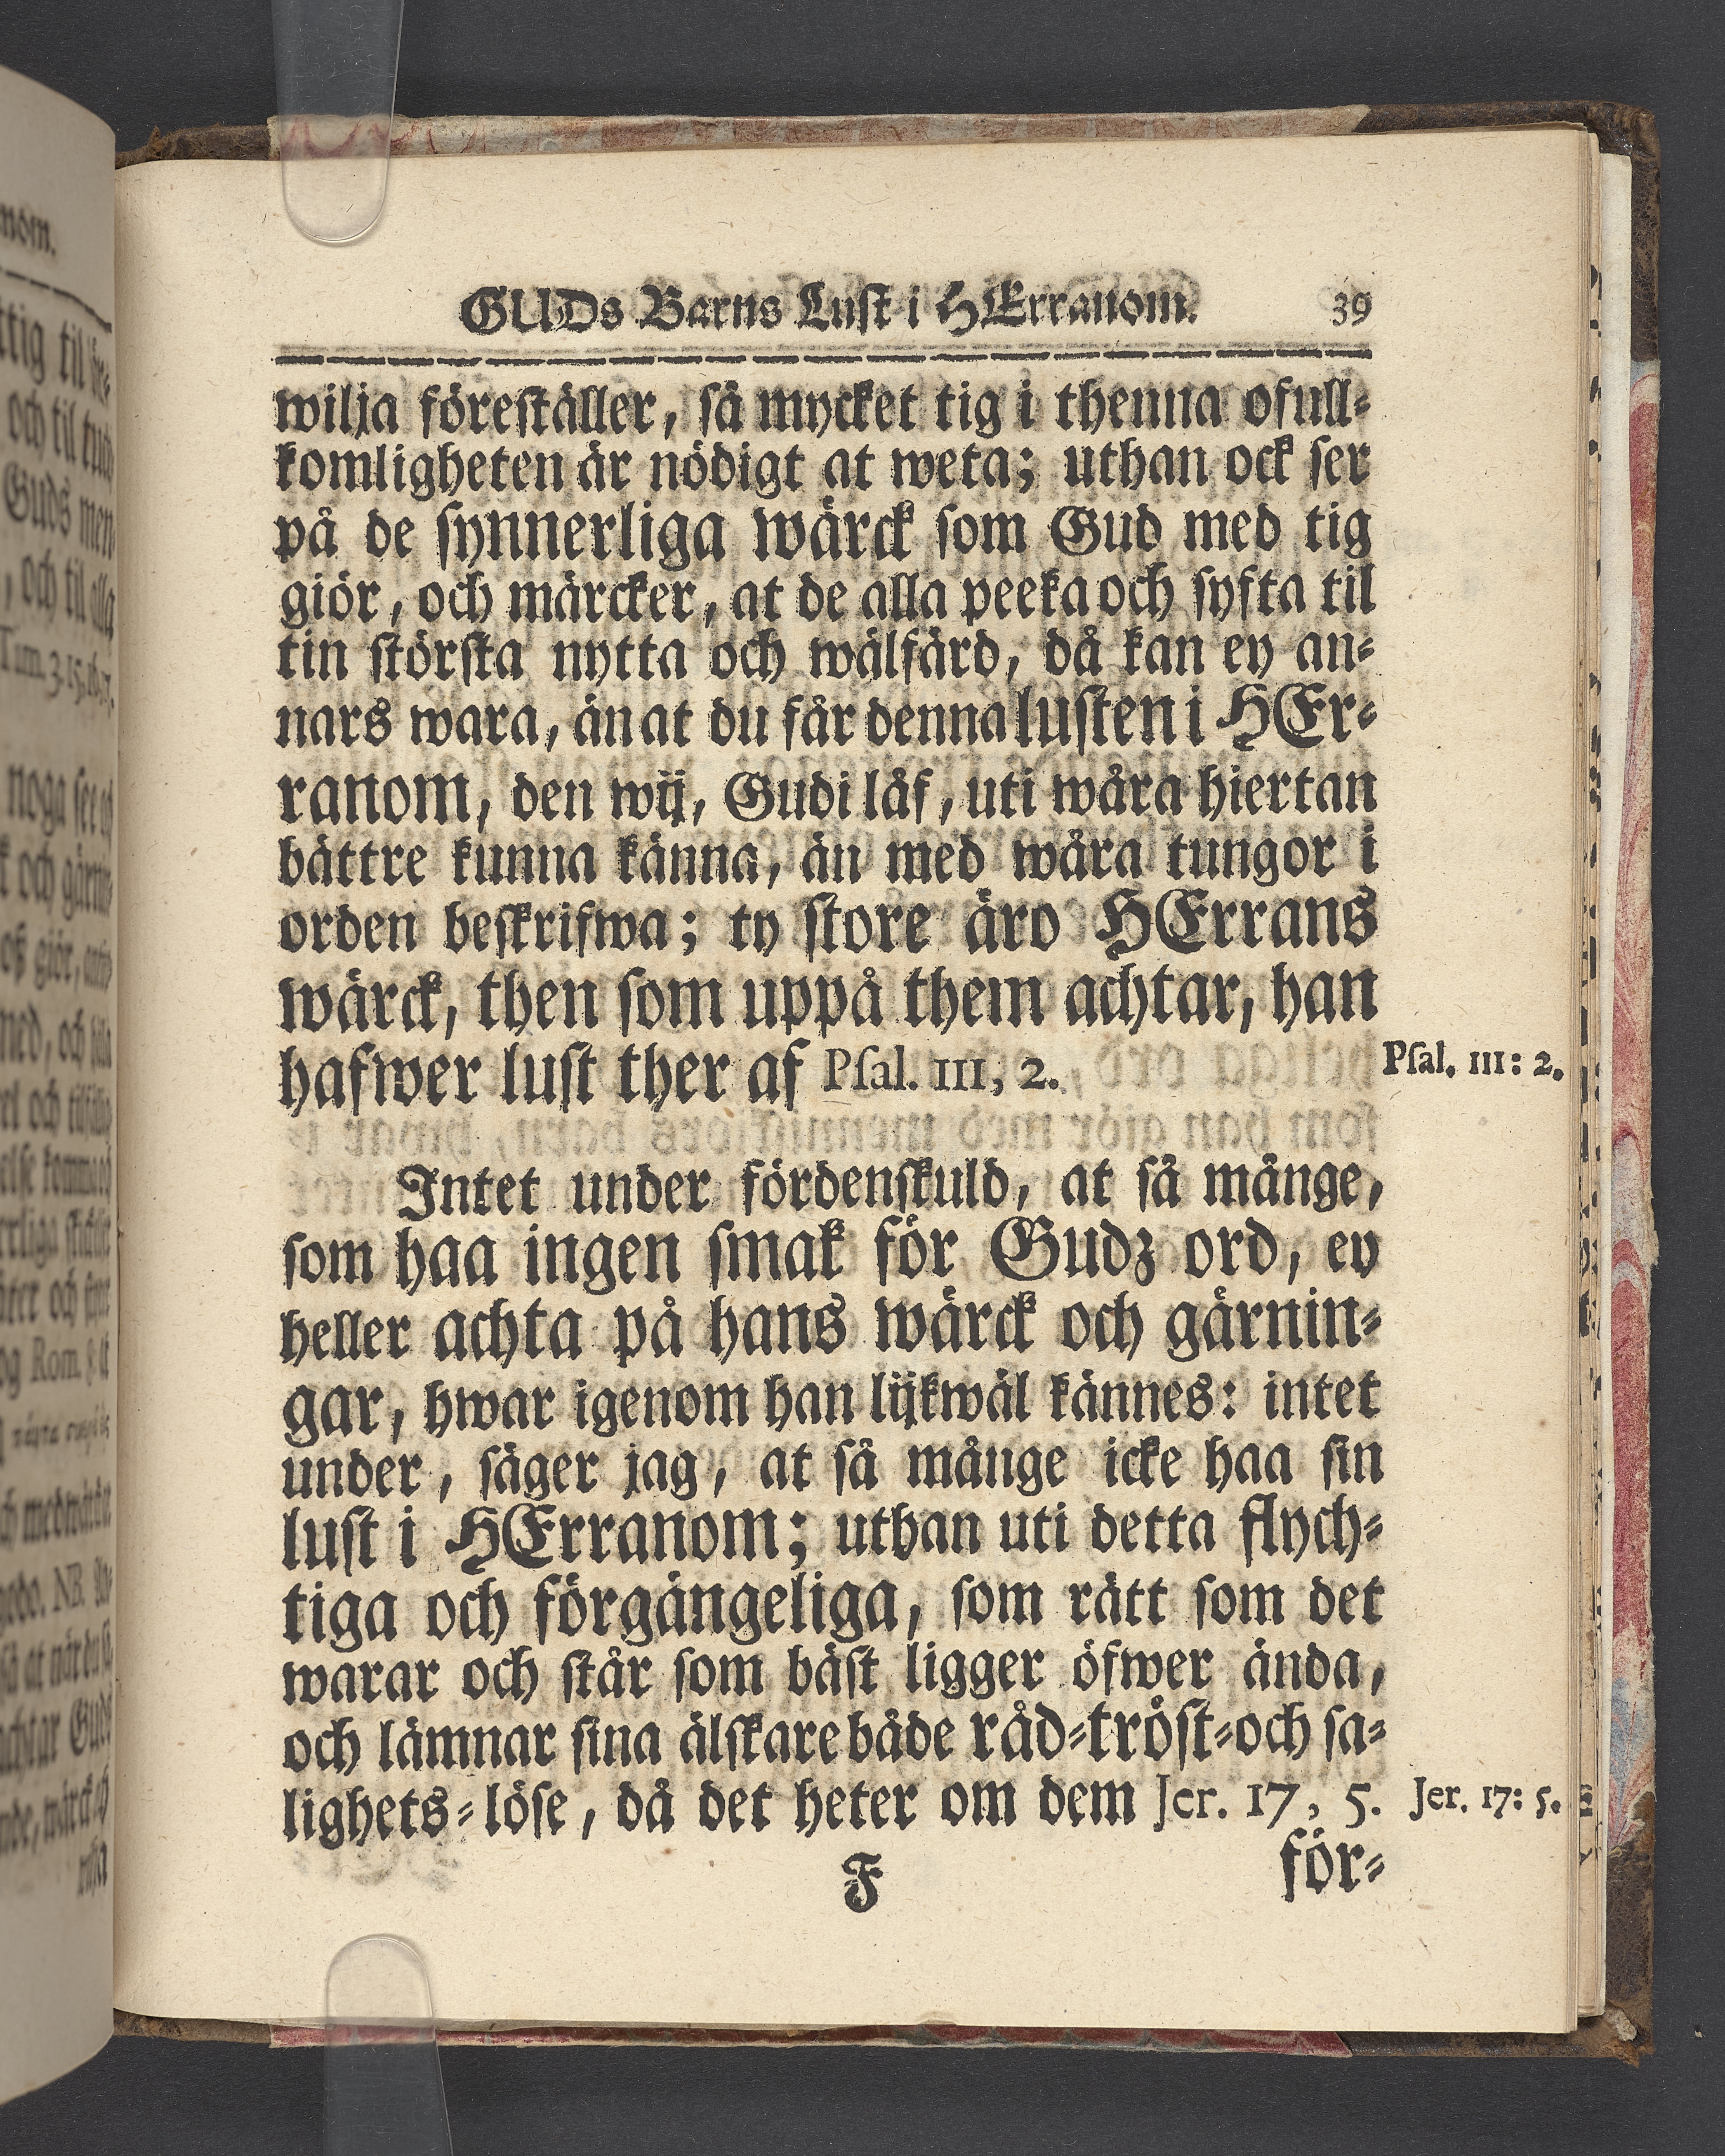 GUDs Barns Lust i HErranom. 39
wilja föreställer, så mycket tig i thenna ofull-
komligheten är nödigt at weta; uthan ock ser
på de synnerliga wärck som Gud med tig
giör, och märcker, at de alla peeka och syfta til
tin största nytta och wälfärd, då kan ey an-
nars wara, än at du får denna lusten i HEr-
ranom, den wij, Gudi låf, uti wåra hiertan
bättre kunna känna, än med wåra tungor i
orden beskrifwa; ty store äro HErrans
wärck, then som uppå them achtar, han
hafwer lust ther af Psal. 111, 2.
Psal. 111: 2.
Intet under fördenskuld, at så månge,
som haa ingen smak för Gudz ord, ey
heller achta på hans wärck och gärnin-
gar, hwar igenom han lijkwäl kännes: intet
under, säger jag, at så månge icke haa sin
lust i HErranom; uthan uti detta flych-
tiga och förgängeliga, som rätt som det
warar och står som bäst ligger öfwer ända,
och lämnar sina älskare både råd-tröst-och sa-
lighets-löse, då det heter om dem Jer. 17, 5.
Jer. 17: 5.
F för-